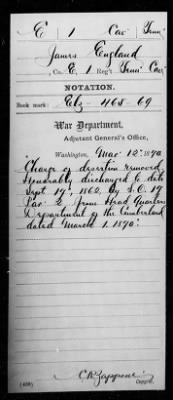 E | 1 | Cav | Tenn.
James England
, Co. E, 1 Reg't Tenn. Cav.
NOTATION.
Book mark: 465-69
War Department,
Adjutant General's Office,
Washington, Mar 12. 1890
Charge of desertion removed
Honorably discharged to date
Sept 19", 1862, by S.O. 19
Par 2 from Head Quarters
Department of the Cumberland
dated March 1. 1890.
Copyist.